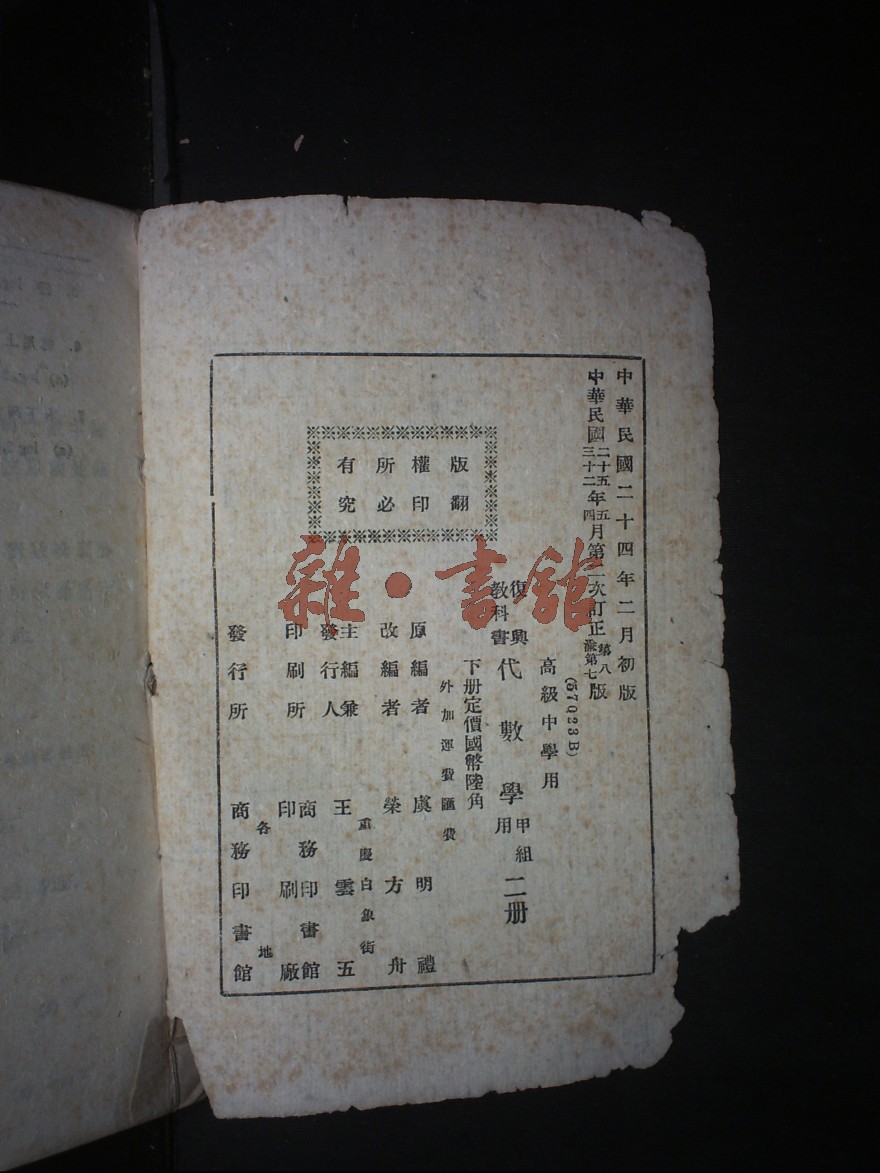 中華民國二十四年二月初版
中華民國二十五年五月第二次訂正第八版
三十二 四 渝第七
(57023B)
高級中學用
復興
教科書
代數學甲組用二册
下册定價國幣陸角
外加運費匯費
版權所有
翻印必究
原編者 虞明禮
改編者 榮方舟
主編兼發行人 王雲五
重慶白象街
印刷所 商務印書館印刷廠
發行所 各地商務印書館
雜·書館